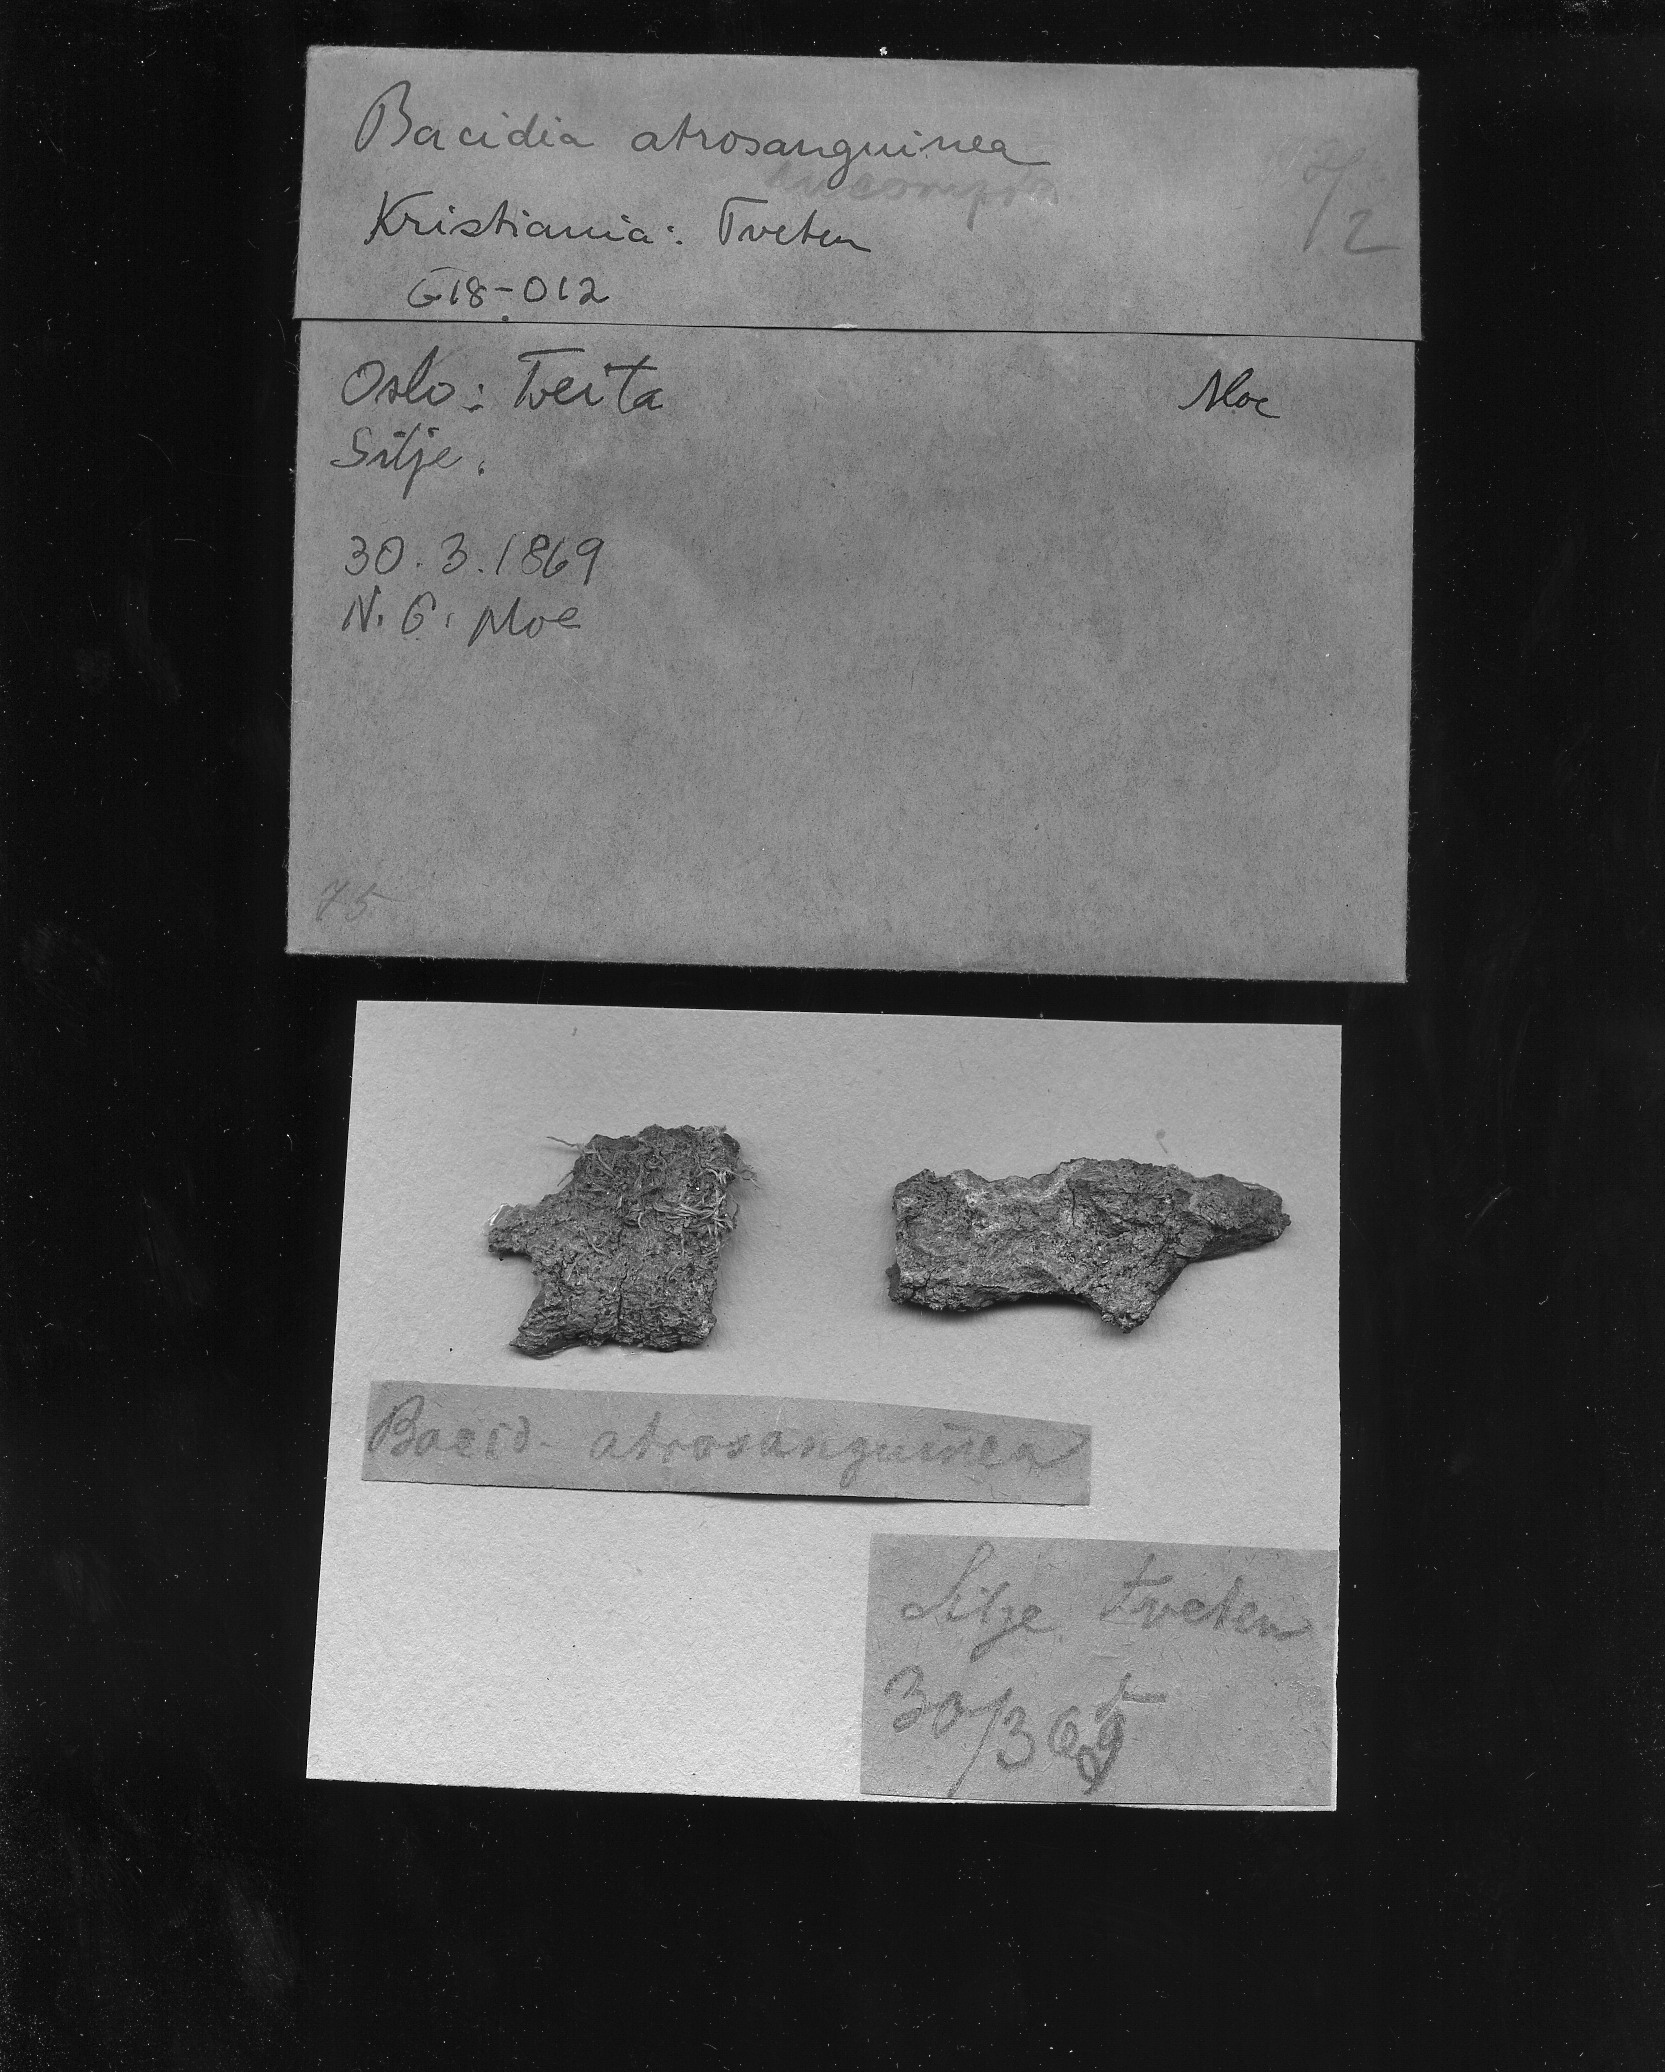 Bacidia atrosanguinea
incompta
Kristiania: Tveten
G18-012
Oslo: Tveita
Moe
Silje.
30.3.1869
N. G. Moe
75
Bacid. atrosanguinea
Silje Tveten
30/3 69